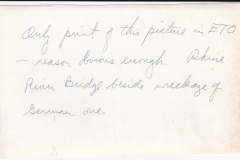 Only print of this picture in ETO
– reason obvious enough. Rhine
River Bridge beside wreckage of
German one.